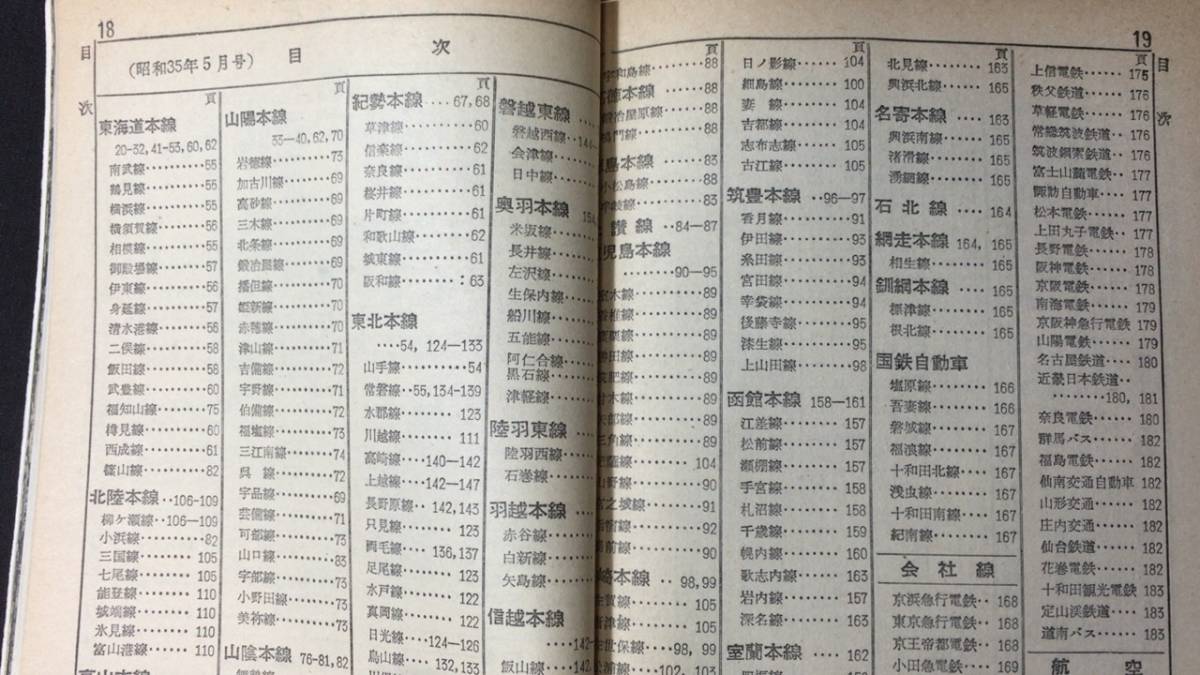 18
目次
(昭和35年5月号) 目 次
頁
東海道本線
20-32, 41-53, 60, 62
南武線………55
鶴見線………55
横浜線………55
横須賀線………56
相模線………55
御殿場線………57
伊東線………56
身延線………57
清水港線………56
二俣線………58
飯田線………58
武豊線………60
福知山線………75
樽見線………60
西成線………61
篠山線………82
北陸本線‥106-109
柳ヶ瀬線‥106-109
小浜線………82
三国線………105
七尾線………105
能登線………110
城端線………110
氷見線………110
富山港線………110
高山本線
頁
山陽本線
33-40, 62, 70
岩徳線………73
加古川線………69
高砂線………69
三木線………69
北条線………69
鍛冶屋線………69
播但線………70
姫新線………70
赤穂線………70
津山線………71
吉備線………72
宇野線………71
伯備線………72
福塩線………73
三江南線………74
呉線………72
宇品線………69
芸備線………71
可部線………73
山口線………83
宇部線………73
小野田線………73
美祢線………73
山陰本線 76-81, 82
頁
紀勢本線‥‥67, 68
草津線………60
信楽線………62
奈良線………61
桜井線………61
片町線………61
和歌山線………62
城東線………61
阪和線………63
東北本線
‥‥54, 124-133
山手線………54
常磐線‥55, 134-139
水郡線………123
川越線………111
高崎線‥‥140-142
上越線‥‥142-147
長野原線‥142, 143
只見線………123
両毛線‥‥136, 137
足尾線………123
水戸線………122
真岡線………122
日光線‥‥124-126
烏山線‥‥132, 133
磐越東線
磐越西線
会津線
日中線
奥羽本線
米坂線
長井線
左沢線
生保内線
船川線
五能線
阿仁合線
黒石線
津軽線
陸羽東線
陸羽西線
石巻線
羽越本線
赤谷線
白新線
矢島線
信越本線
飯山線
19
目次
頁
88
88
88
88
83
88
83
讃線‥84-87
90-95
89
89
89
89
89
89
89
89
104
90
91
92
90
98, 99
105
105
98, 99
102, 103
頁
日ノ影線‥‥104
細島線………100
妻線………104
吉都線………104
志布志線………105
古江線………105
筑豊本線‥96-97
香月線………91
伊田線………93
糸田線………93
宮田線………94
幸袋線………94
後藤寺線………95
漆生線………95
上山田線………98
函館本線 158-161
江差線………157
松前線………157
瀬棚線………157
手宮線………158
札沼線………158
千歳線………159
幌内線………160
歌志内線………163
岩内線………157
深名線………163
室蘭本線‥‥162
頁
北見線………163
興浜北線………165
名寄本線‥‥163
興浜南線………165
渚滑線………165
湧網線………165
石北線‥‥164
網走本線 164, 165
相生線………165
釧網本線‥‥165
標津線………165
根北線………165
国鉄自動車
塩原線………166
吾妻線………166
磐城線………167
福浪線………167
十和田北線‥‥167
浅虫線………167
十和田南線‥‥167
紀南線………167
会社線
京浜急行電鉄‥168
東京急行電鉄‥168
京王帝都電鉄‥168
小田急電鉄‥‥169
頁
上信電鉄………175
秩父鉄道………176
草軽電鉄………176
常総筑波鉄道‥‥176
筑波鋼索鉄道‥‥176
富士山麓電鉄‥‥177
諏訪自動車‥‥177
松本電鉄………177
上田丸子電鉄‥‥177
長野電鉄………178
阪神電鉄………178
京阪電鉄………178
南海電鉄………179
京阪神急行電鉄‥179
山陽電鉄………179
名古屋鉄道‥‥180
近畿日本鉄道‥
………180, 181
奈良電鉄………180
群馬バス………182
福島電鉄………182
仙南交通自動車 182
山形交通………182
庄内交通………182
仙台鉄道………182
花巻電鉄………182
十和田観光電鉄 183
定山渓鉄道‥‥183
道南バス………183
航空